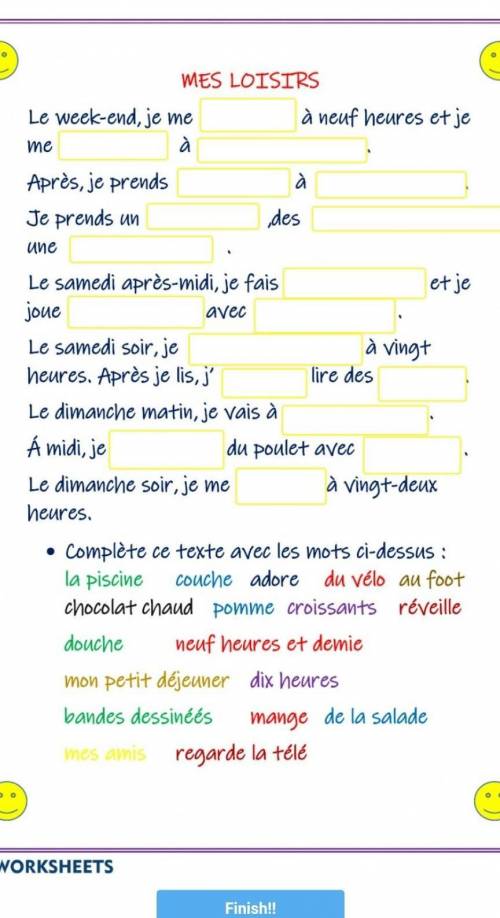 MES LOISIRS
Le week-end, je me à neuf heures et je
me à .
Après, je prends à .
Je prends un ,des
une .
Le samedi après-midi, je fais et je
joue avec .
Le samedi soir, je à vingt
heures. Après je lis, j' lire des .
Le dimanche matin, je vais à .
Á midi, je du poulet avec .
Le dimanche soir, je me à vingt-deux
heures.
• Complète ce texte avec les mots ci-dessus :
la piscine couche adore du vélo au foot
chocolat chaud pomme croissants réveille
douche neuf heures et demie
mon petit déjeuner dix heures
bandes dessinéés mange de la salade
mes amis regarde la télé
WORKSHEETS
Finish!!